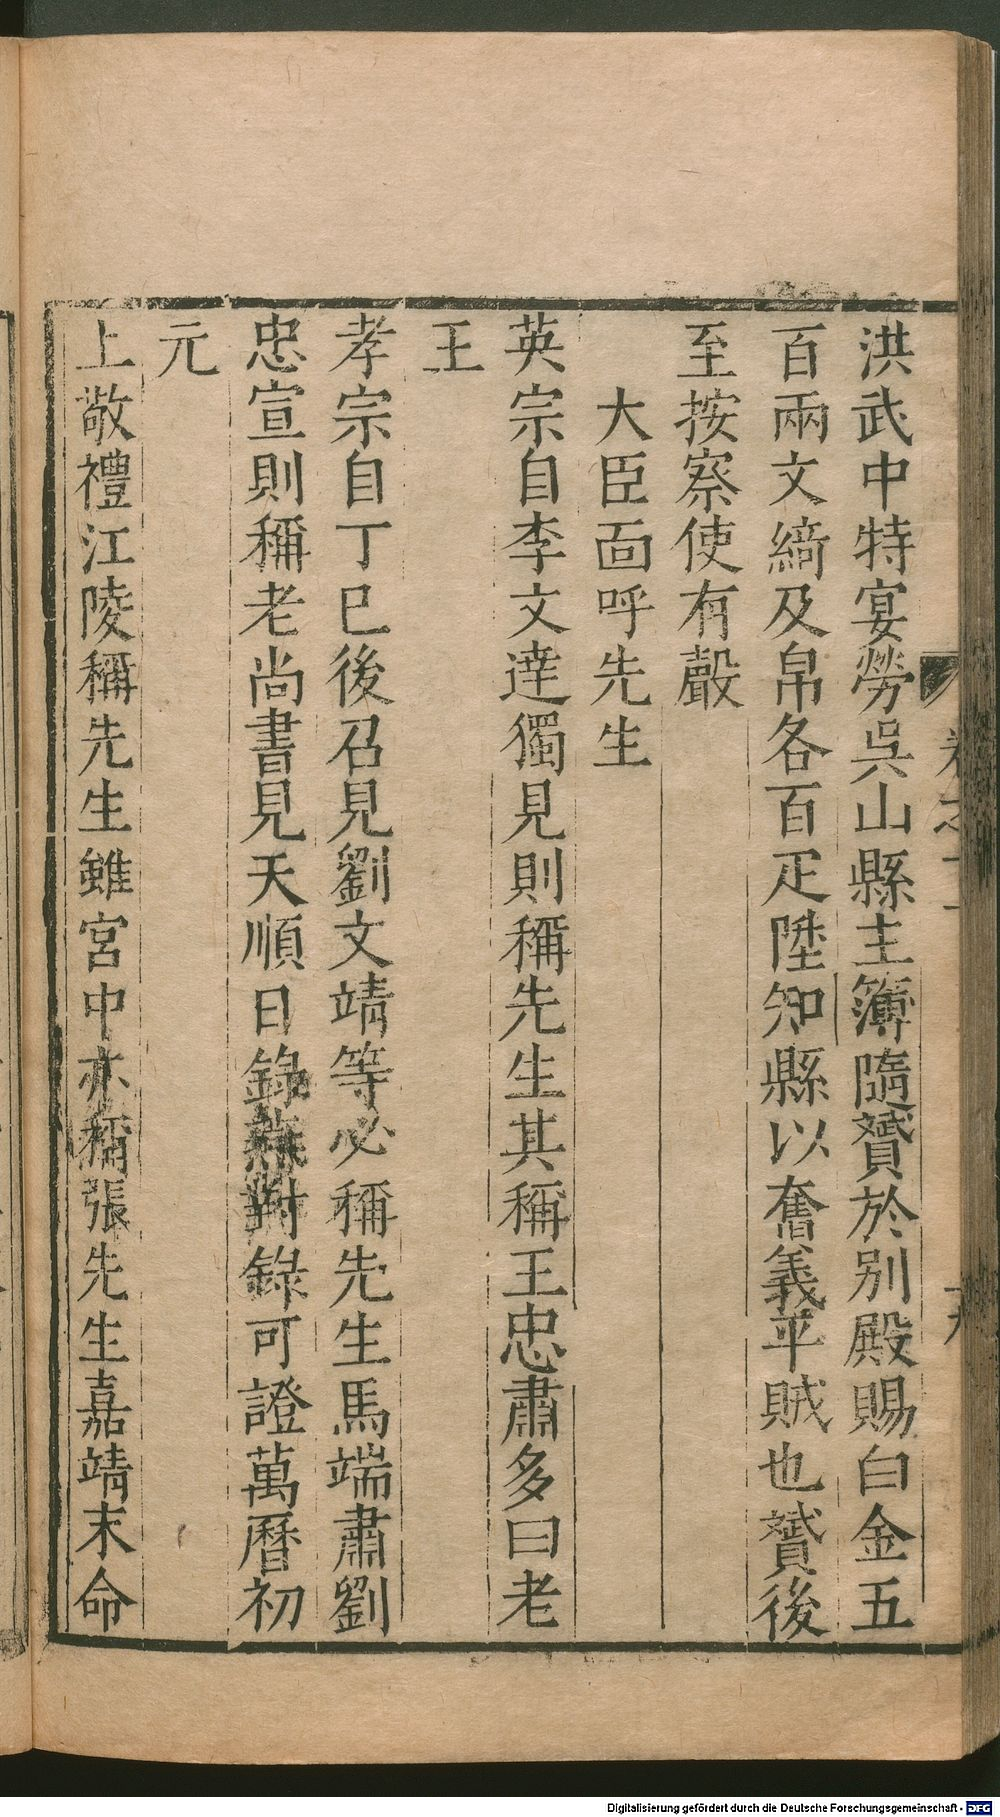 洪武中特宴勞吳山縣主簿隨贇於別殿賜白金五
百兩文綺及帛各百疋陞知縣以奮義平賊也贇後
至按察使有聲
大臣面呼先生
英宗自李文達獨見則稱先生其稱王忠肅多曰老
王
孝宗自丁巳後召見劉文靖等必稱先生馬端肅劉
忠宣則稱老尚書見天順日錄燕對錄可證萬曆初
元
上敬禮江陵稱先生雖宮中亦稱張先生嘉靖末命
Digitalisierung gefördert durch die Deutsche Forschungsgemeinschaft - DFG